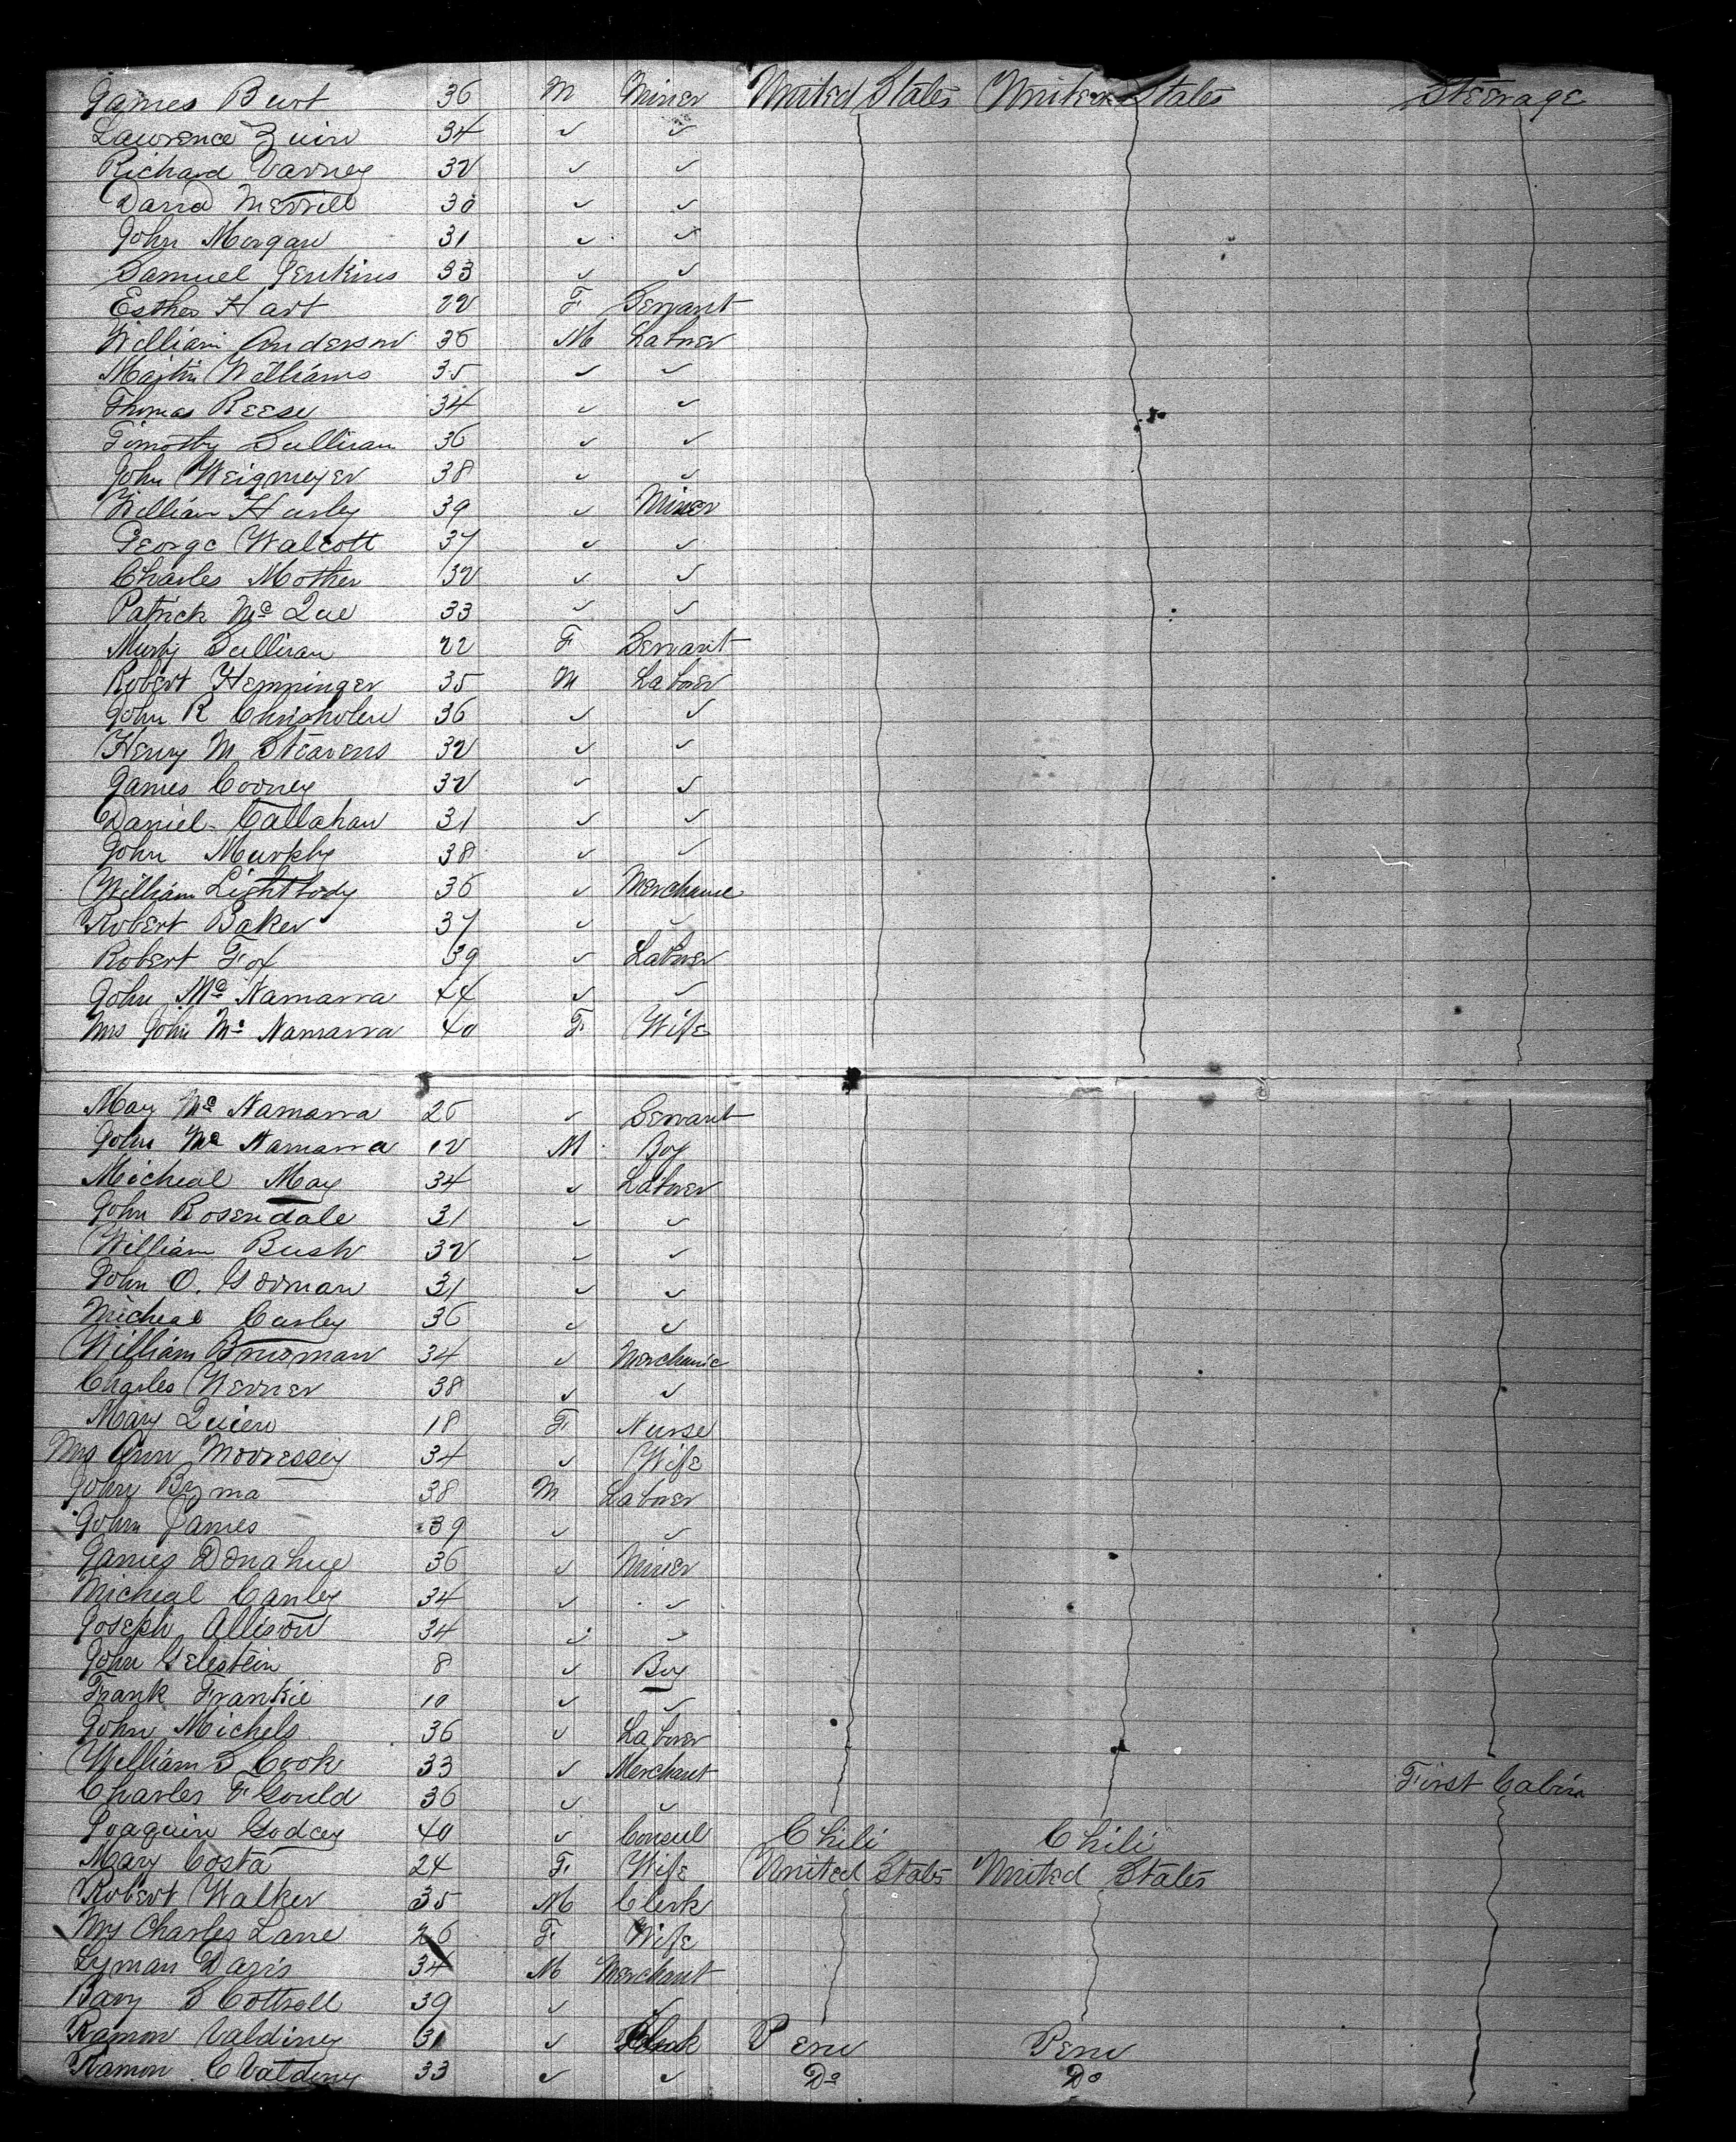 James Burt 36 M Miner United States United States Steerage
Lawrence Quin 34 ✓ ✓
Richard Varney 32 ✓ ✓
David Merrill 30 ✓ ✓
John Morgan 31 ✓ ✓
Samuel Jenkins 33 ✓ ✓
Esther Hart 22 F Servant
William Anderson 36 M Laborer
Martin Williams 35 ✓ ✓
Thomas Reese 34 ✓ ✓
Timothy Sullivan 36 ✓ ✓
John Weigmeyer 38 ✓ ✓
William Hurley 39 ✓ Miner
George Walcott 37 ✓ ✓
Charles Mother 32 ✓ ✓
Patrick Mc Que 33 ✓ ✓
Sullivan 22 F Servant
Robert Hemminger 35 M Laborer
John R Chrisholm 36 ✓ ✓
Henry M Steavens 32 ✓ ✓
James Cooney 32 ✓ ✓
Daniel Callahan 31 ✓ ✓
John Murphy 38 ✓ ✓
William Lightbody 36 ✓
Robert Baker 37 ✓ ✓
Robert Fox 39 ✓ Laborer
John Mc Namarra 44 ✓ ✓
Mrs John Mc Namarra 40 F Wife
May Mc Namarra 26 ✓ Servant
John Mc Namarra 12 M Boy
Micheal May 34 ✓ Laborer
John Rosendale 31 ✓ ✓
William Bush 32 ✓ ✓
John O. Gorman 31 ✓ ✓
Micheal Curley 36 ✓ ✓
William 34 ✓ Merchanic
Charles Werner 38 ✓ ✓
Mary Quien 18 F Nurse
Mrs Ann Mooressey 34 ✓ Wife
John Byrna 38 M Laborer
John James 39 ✓ ✓
James Donahue 36 ✓ Miner
Micheal Canley 34 ✓ ✓
Joseph Allison 34 ✓ ✓
John Gelestein 8 ✓ Boy
Frank Frankie 10 ✓ ✓
John Michels 36 ✓ Laborer
William S Cook 33 ✓ Merchant First Cabin
Charles F Gould 36 ✓ ✓
Joaquin Godcey 40 ✓ Consul Chili Chili
Mary Costa 24 F Wife United States United States
Robert Walker 35 M Clerk
Mrs Charles Lane 26 F Wife
Lyman Davis 34 M Merchant
Barry S Cottrell 39 ✓ ✓
Ramon Valdiney 31 ✓ Clerk Peru Peru
Ramon C Valdiney 33 ✓ ✓ Do Do